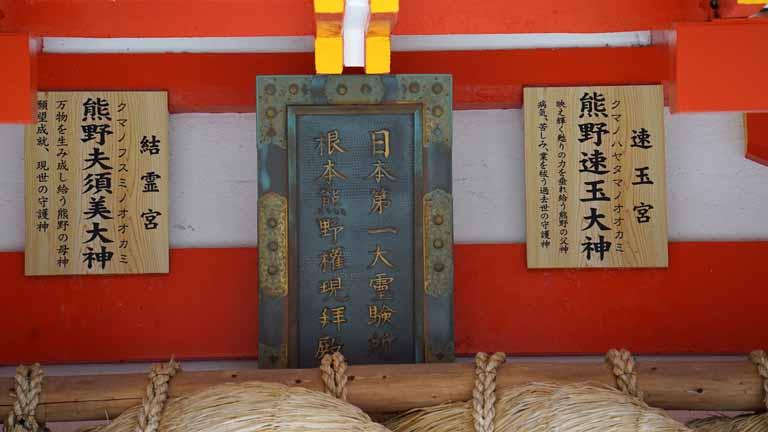 速玉宮
クマノハヤタマノオオカミ
熊野速玉大神
映え輝く甦りの力を垂れ給う熊野の父神
病気、苦しみ、業を祓う過去世の守護神
日本第一大霊験所
根本熊野権現拝殿
結霊宮
クマノフスミノオオカミ
熊野夫須美大神
万物を生み成し給う熊野の母神
願望成就、現世の守護神